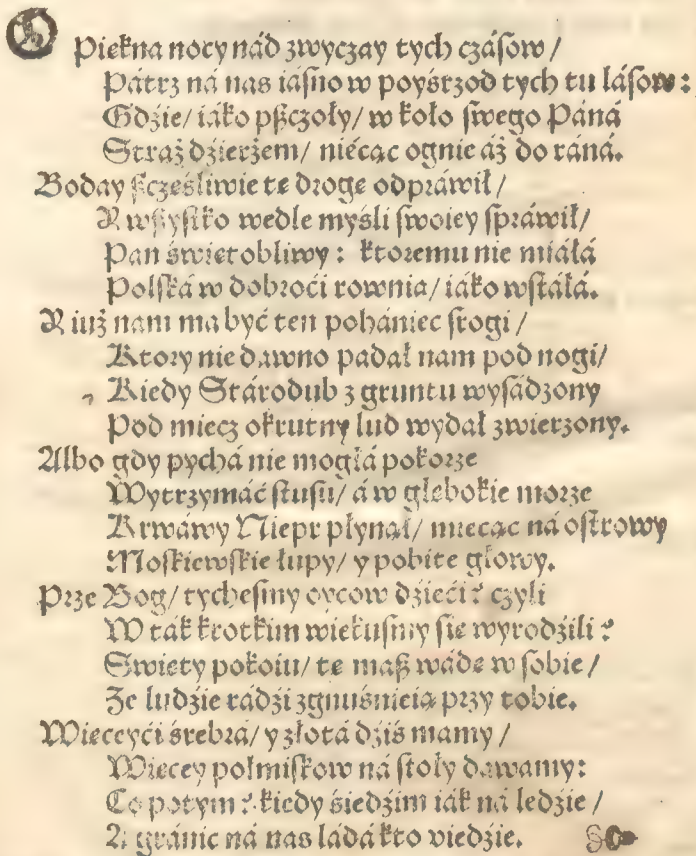 O Piękna nocy nád zwyczay tych czásow /
Pátrz ná nas iásno w poyśrzod tych tu lásow:
Gdźie/ iáko pszczoły/ w koło swego Páná
Straż dźierżem/ niécąc ognie áż do ráná.
Boday szczęśliwie tę drogę odpráwił/
A wszystko wedle myśli swoiey spráwił/
Pan świętobliwy: ktoremu nie miáłá
Polská w dobroći rownia/ iáko wstáłá.
A iuż nam ma być ten pohániec srogi /
Ktory niedawno padał nam pod nogi/
Kiedy Stárodub z gruntu wysádzony
Pod miecz okrutny lud wydał zwierzony.
Albo gdy pychá nie mogłá pokorze
Wytrzymáć sztusu/ á w głębokie morze
Krwáwy Niepr płynął/ miecąc ná ostrowy
Moskiewskie łupy/ y pobite głowy.
Prze Bog/ tychesmy oycow dźieći? czyli
W ták krotkim wiekusmy się wyrodźili?
Swięty pokoiu/ tę masz wádę w sobie/
Ze ludźie rádźi zgnuśnieią przy tobie.
Więceyći śrebrá/ y złotá dźiś mamy /
Więcey połmiskow ná stoły dawamy:
Co potym? kiedy śiedźim iák ná ledźie /
A gránic ná nas ládá kto viedźie.